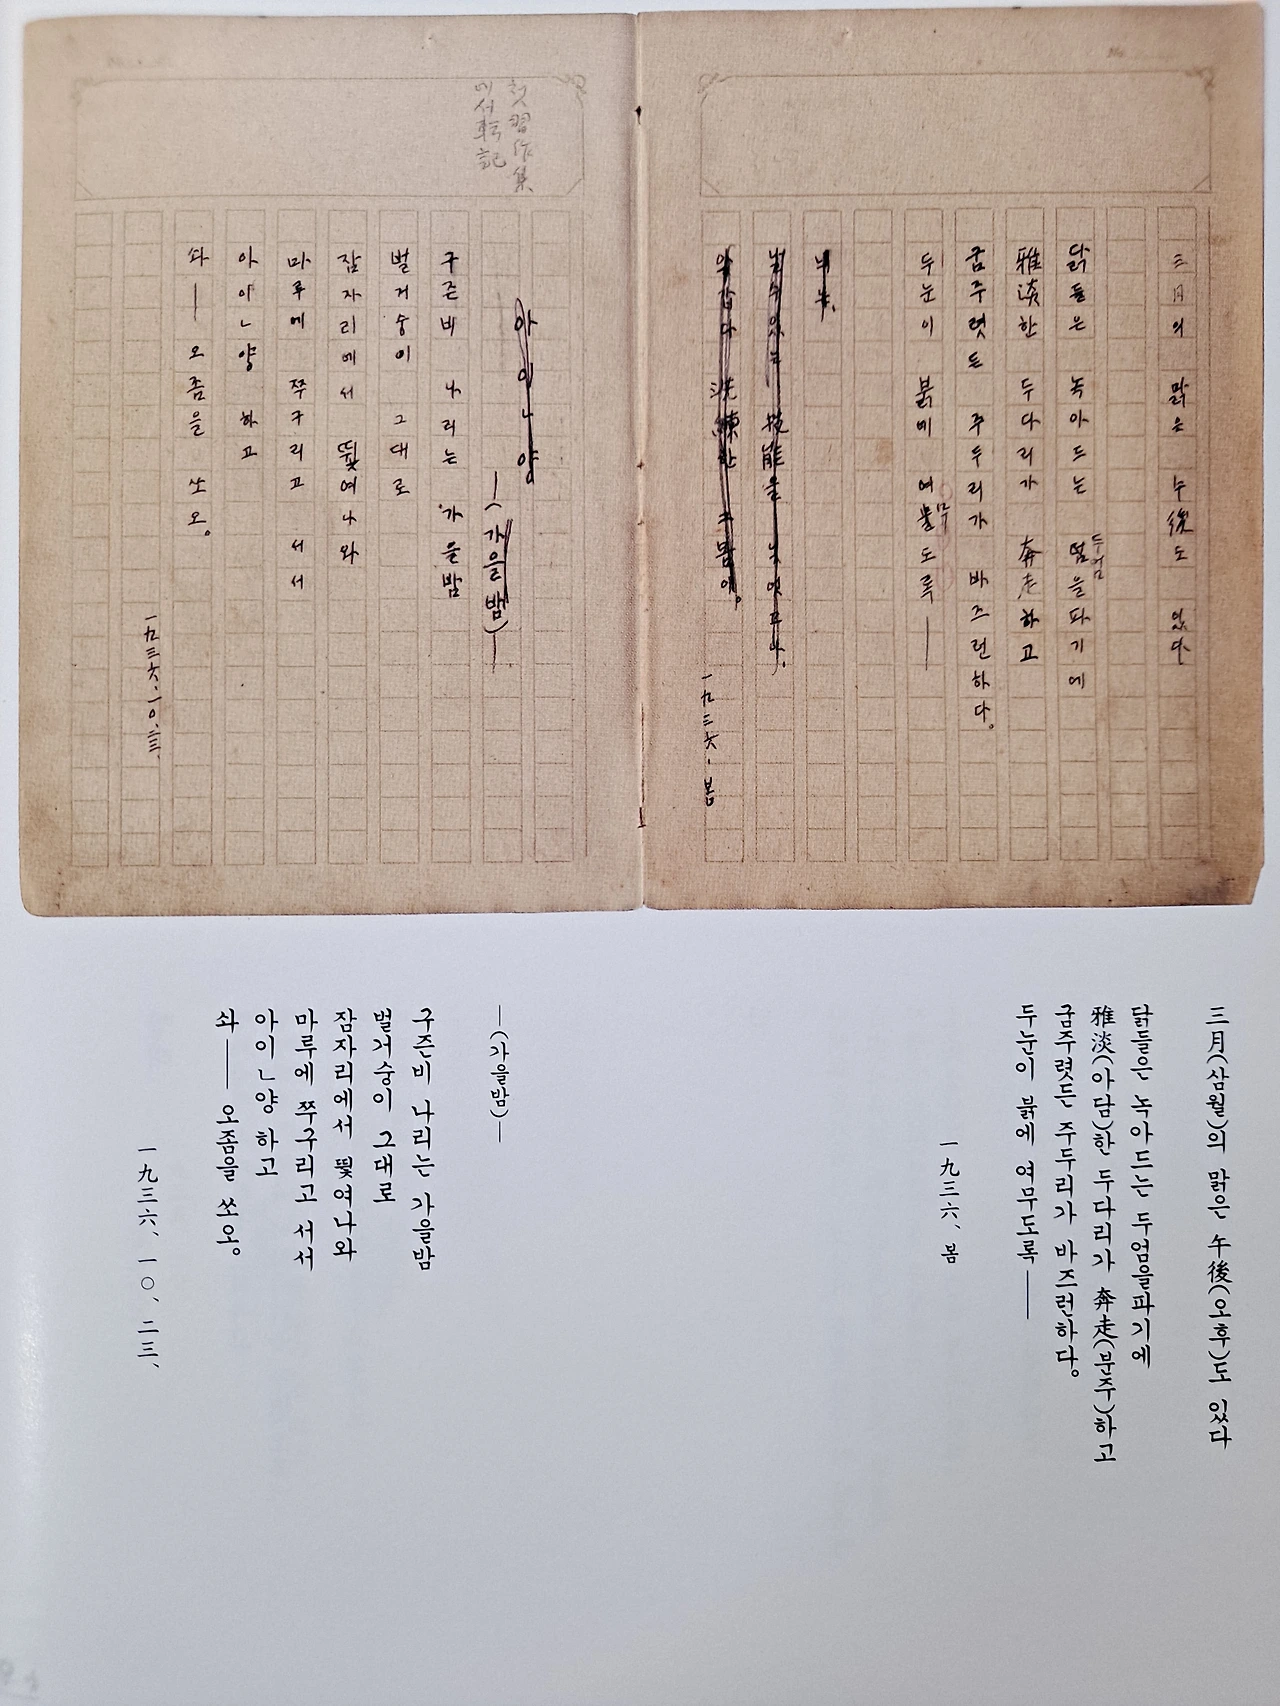 三月의 맑은 午後도 있다
닭들은 녹아드는 두엄을파기에
雅淡한 두다리가 奔走하고
굼주렷든 주두리가 바즈런하다。
두눈이 붉에 여무도록——
날수있는 技能을
洗練한
一九三六、봄
첫習作集
에서転記
아이ㄴ양
—(가을밤)—
구즌비 나리는 가을밤
벌거숭이 그대로
잠자리에서 뛫여나와
마루에 쭈구리고 서서
아이ㄴ양 하고
솨——오좀을 쏘오。
一九三六、一〇、二三、
三月(삼월)의 맑은 午後(오후)도 있다
닭들은 녹아드는 두엄을파기에
雅淡(아담)한 두다리가 奔走(분주)하고
굼주렷든 주두리가 바즈런하다。
두눈이 붉에 여무도록——
一九三六、봄
—(가을밤)—
구즌비 나리는 가을밤
벌거숭이 그대로
잠자리에서 뛫여나와
마루에 쭈구리고 서서
아이ㄴ양 하고
솨——오좀을 쏘오。
一九三六、一〇、二三、